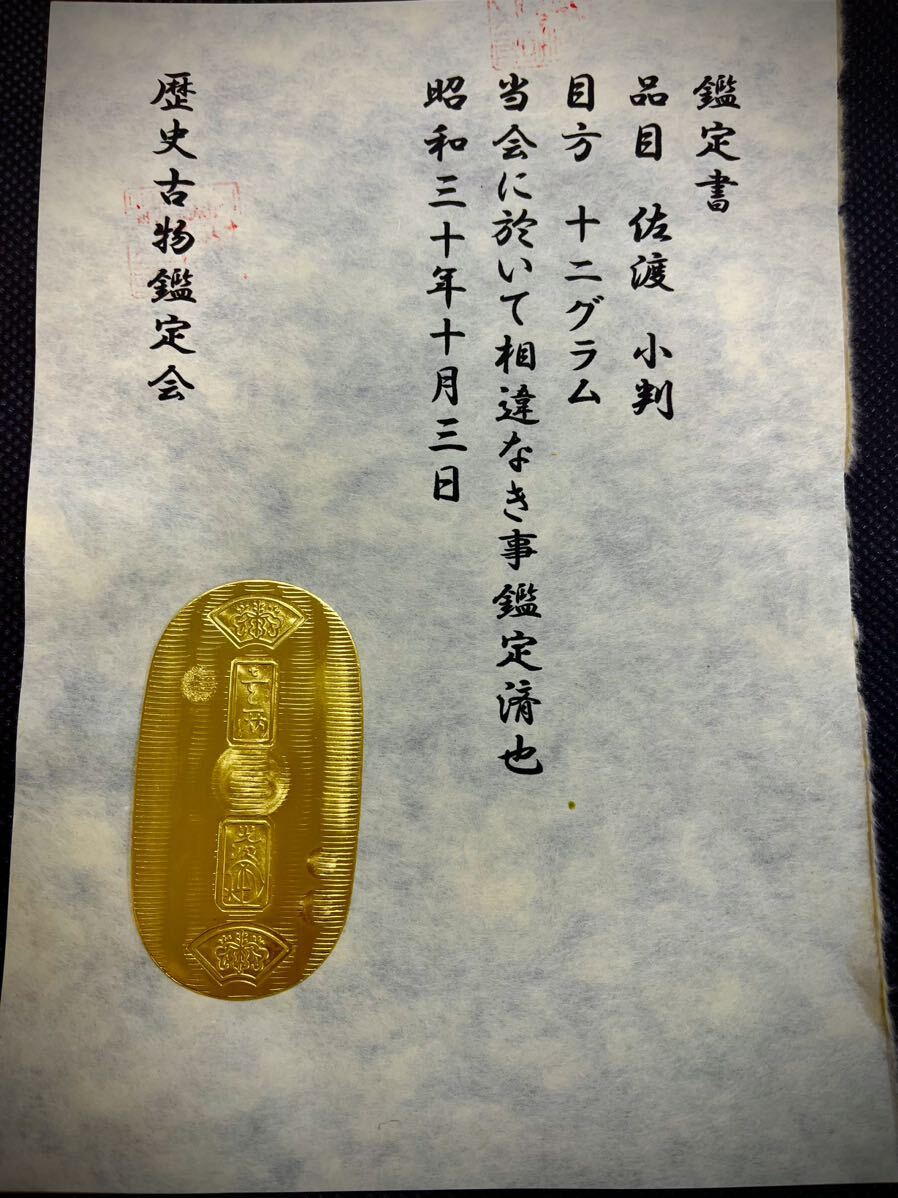 鑑定書
品目 佐渡 小判
目方 十二グラム
当会に於いて相違なき事鑑定済也
昭和三十年十月三日
歴史古物鑑定会